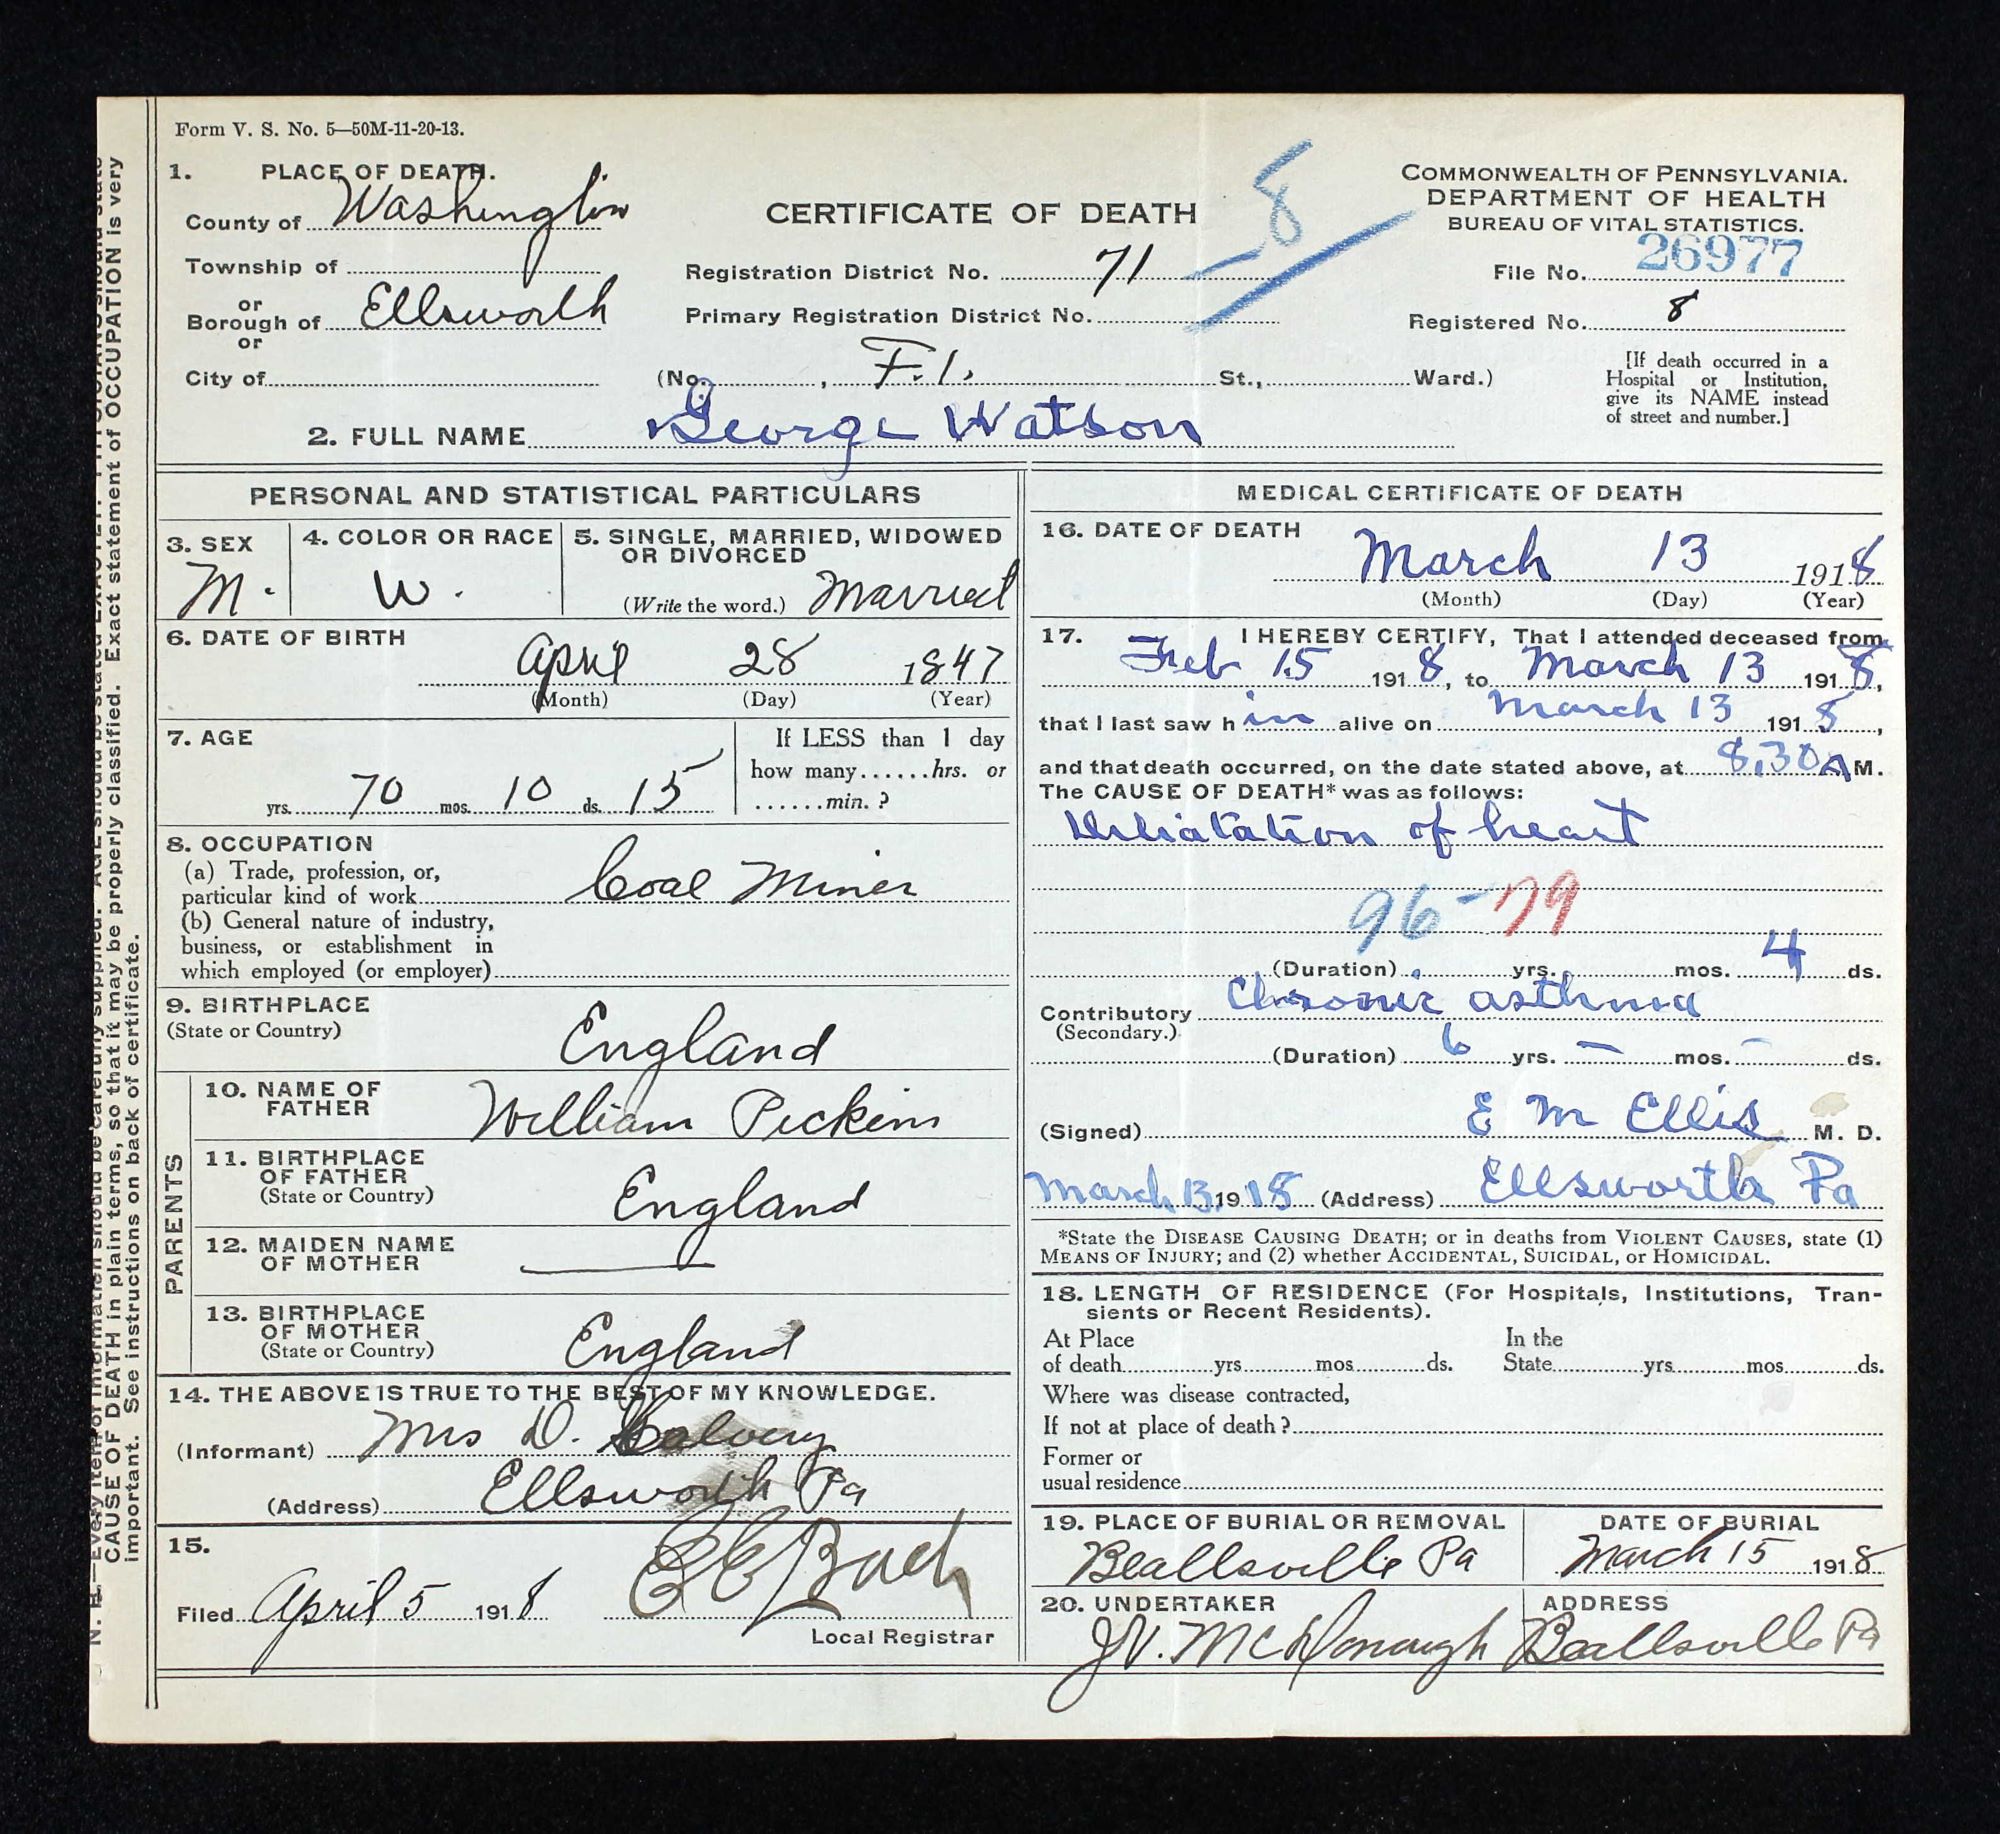 Form V. S. No. 5—50M-11-20-13.
1. PLACE OF DEATH.
County of Washington
Township of
or
Borough of Ellsworth
or
City of
CERTIFICATE OF DEATH
Registration District No. 71
Primary Registration District No.
(No. , F.1. St., Ward.)
-8
COMMONWEALTH OF PENNSYLVANIA.
DEPARTMENT OF HEALTH
BUREAU OF VITAL STATISTICS.
File No. 26977
Registered No. 8
[If death occurred in a
Hospital or Institution,
give its NAME instead
of street and number.]
2. FULL NAME George Watson
PERSONAL AND STATISTICAL PARTICULARS
3. SEX
M.
4. COLOR OR RACE
W.
5. SINGLE, MARRIED, WIDOWED
OR DIVORCED
(Write the word.) Married
6. DATE OF BIRTH
April 28 1847
(Month) (Day) (Year)
7. AGE
yrs. 70 mos. 10 ds. 15
If LESS than 1 day
how many......hrs. or
......min. ?
8. OCCUPATION
(a) Trade, profession, or,
particular kind of work Coal Miner
(b) General nature of industry,
business, or establishment in
which employed (or employer)
9. BIRTHPLACE
(State or Country)
England
PARENTS
10. NAME OF
FATHER
William Pickins
11. BIRTHPLACE
OF FATHER
(State or Country)
England
12. MAIDEN NAME
OF MOTHER
13. BIRTHPLACE
OF MOTHER
(State or Country)
England
14. THE ABOVE IS TRUE TO THE BEST OF MY KNOWLEDGE.
(Informant) Mrs D.
(Address) Ellsworth Pa
15.
Filed April 5 1918
Local Registrar
MEDICAL CERTIFICATE OF DEATH
16. DATE OF DEATH
March 13 1918
(Month) (Day) (Year)
17. I HEREBY CERTIFY, That I attended deceased from
Feb 15 1918, to March 13 1918,
that I last saw him alive on March 13 1918,
and that death occurred, on the date stated above, at 8,30 A M.
The CAUSE OF DEATH* was as follows:
of heart
96-79
(Duration) yrs. mos. 4 ds.
Contributory Chronic asthma
(Secondary.)
(Duration) 6 yrs. — mos. — ds.
(Signed) E M Ellis M. D.
March 13, 1918 (Address) Ellsworth Pa
*State the DISEASE CAUSING DEATH; or in deaths from VIOLENT CAUSES, state (1)
MEANS OF INJURY; and (2) whether ACCIDENTAL, SUICIDAL, or HOMICIDAL.
18. LENGTH OF RESIDENCE (For Hospitals, Institutions, Tran-
sients or Recent Residents).
At Place In the
of death yrs mos ds. State yrs mos ds.
Where was disease contracted,
If not at place of death ?
Former or
usual residence
19. PLACE OF BURIAL OR REMOVAL
Beallsville Pa
DATE OF BURIAL
March 15 1918
20. UNDERTAKER
J V. McDonough
ADDRESS
Beallsville Pa
CAUSE OF DEATH in plain terms, so that it may be properly classified. Exact statement of OCCUPATION is very
important. See instructions on back of certificate.